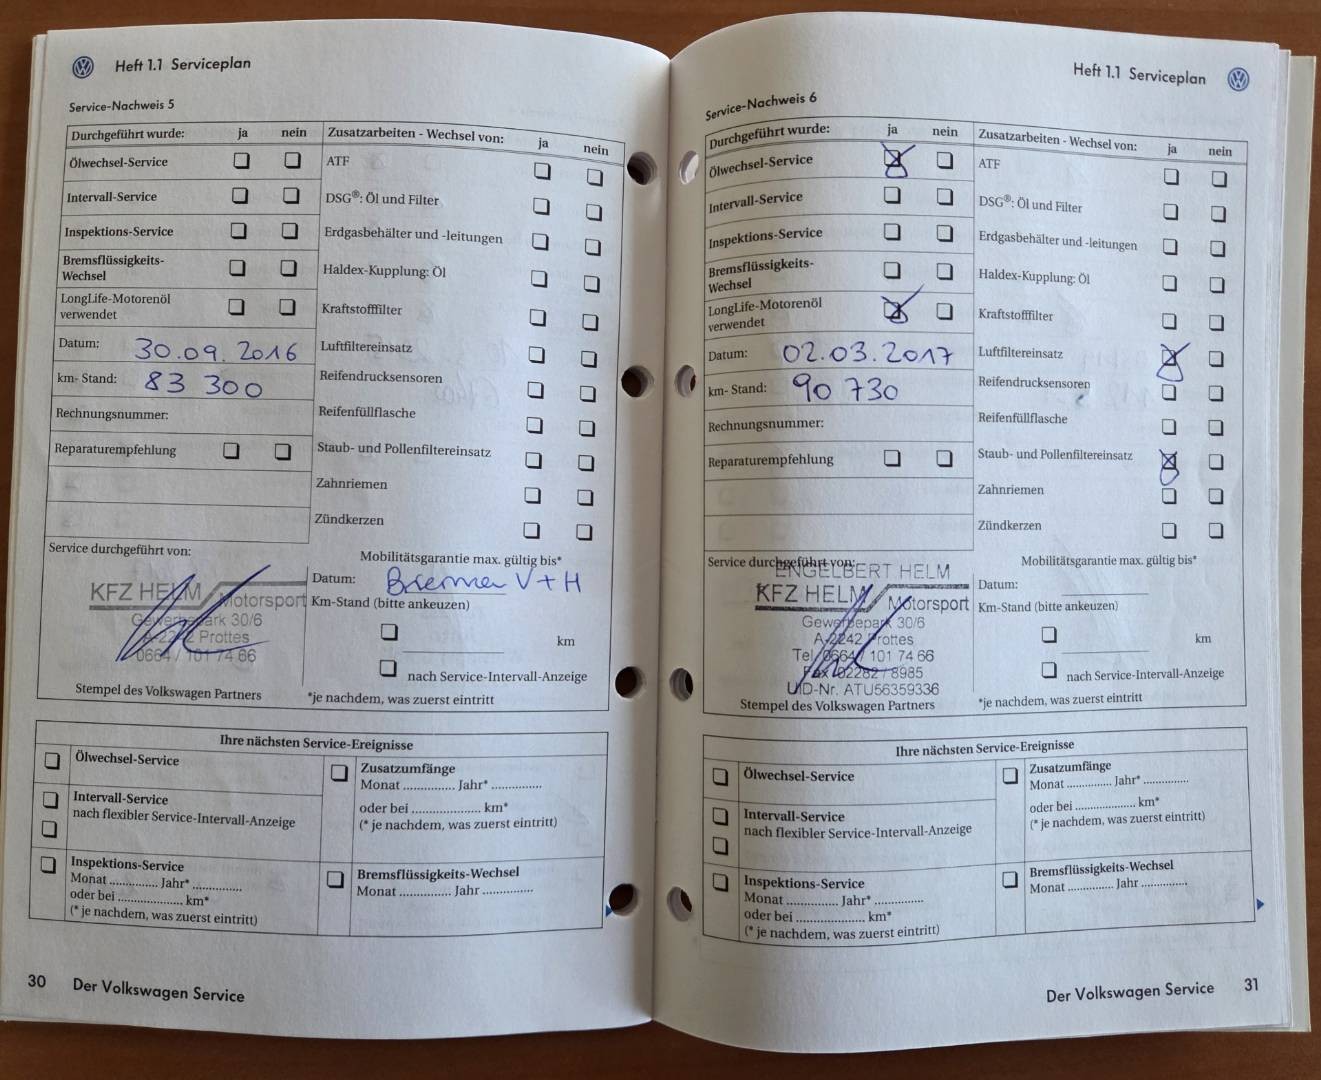 Heft 1.1 Serviceplan
Service-Nachweis 5
Durchgeführt wurde: ja nein
Ölwechsel-Service
Intervall-Service
Inspektions-Service
Bremsflüssigkeits-
Wechsel
LongLife-Motorenöl
verwendet
Datum: 30.09.2016
km- Stand: 83 300
Rechnungsnummer:
Reparaturempfehlung
Zusatzarbeiten - Wechsel von: ja nein
ATF
DSG®: Öl und Filter
Erdgasbehälter und -leitungen
Haldex-Kupplung: Öl
Kraftstofffilter
Luftfiltereinsatz
Reifendrucksensoren
Reifenfüllflasche
Staub- und Pollenfiltereinsatz
Zahnriemen
Zündkerzen
Service durchgeführt von:
KFZ HELM Motorsport
Gewerbepark 30/6
A-2242 Prottes
0664 / 101 74 66
Stempel des Volkswagen Partners
Mobilitätsgarantie max. gültig bis*
Datum: Bremsen V+H
Km-Stand (bitte ankeuzen)
km
nach Service-Intervall-Anzeige
*je nachdem, was zuerst eintritt
Ihre nächsten Service-Ereignisse
Ölwechsel-Service
Intervall-Service
nach flexibler Service-Intervall-Anzeige
Inspektions-Service
Monat .............. Jahr* ..............
oder bei ................... km*
(* je nachdem, was zuerst eintritt)
Zusatzumfänge
Monat .............. Jahr* ..............
oder bei ................... km*
(* je nachdem, was zuerst eintritt)
Bremsflüssigkeits-Wechsel
Monat .............. Jahr ..............
30 Der Volkswagen Service
Heft 1.1 Serviceplan
Service-Nachweis 6
Durchgeführt wurde: ja nein
Ölwechsel-Service
Intervall-Service
Inspektions-Service
Bremsflüssigkeits-
Wechsel
LongLife-Motorenöl
verwendet
Datum: 02.03.2017
km- Stand: 90 730
Rechnungsnummer:
Reparaturempfehlung
Zusatzarbeiten - Wechsel von: ja nein
ATF
DSG®: Öl und Filter
Erdgasbehälter und -leitungen
Haldex-Kupplung: Öl
Kraftstofffilter
Luftfiltereinsatz
Reifendrucksensoren
Reifenfüllflasche
Staub- und Pollenfiltereinsatz
Zahnriemen
Zündkerzen
Service durchgeführt von:
ENGELBERT HELM
KFZ HELM Motorsport
Gewerbepark 30/6
A-2242 Prottes
Tel. 0664 / 101 74 66
Fax 02282 / 8985
UID-Nr. ATU56359336
Stempel des Volkswagen Partners
Mobilitätsgarantie max. gültig bis*
Datum:
Km-Stand (bitte ankeuzen)
km
nach Service-Intervall-Anzeige
*je nachdem, was zuerst eintritt
Ihre nächsten Service-Ereignisse
Ölwechsel-Service
Intervall-Service
nach flexibler Service-Intervall-Anzeige
Inspektions-Service
Monat .............. Jahr* ..............
oder bei ................... km*
(* je nachdem, was zuerst eintritt)
Zusatzumfänge
Monat .............. Jahr* ..............
oder bei ................... km*
(* je nachdem, was zuerst eintritt)
Bremsflüssigkeits-Wechsel
Monat .............. Jahr ..............
Der Volkswagen Service 31